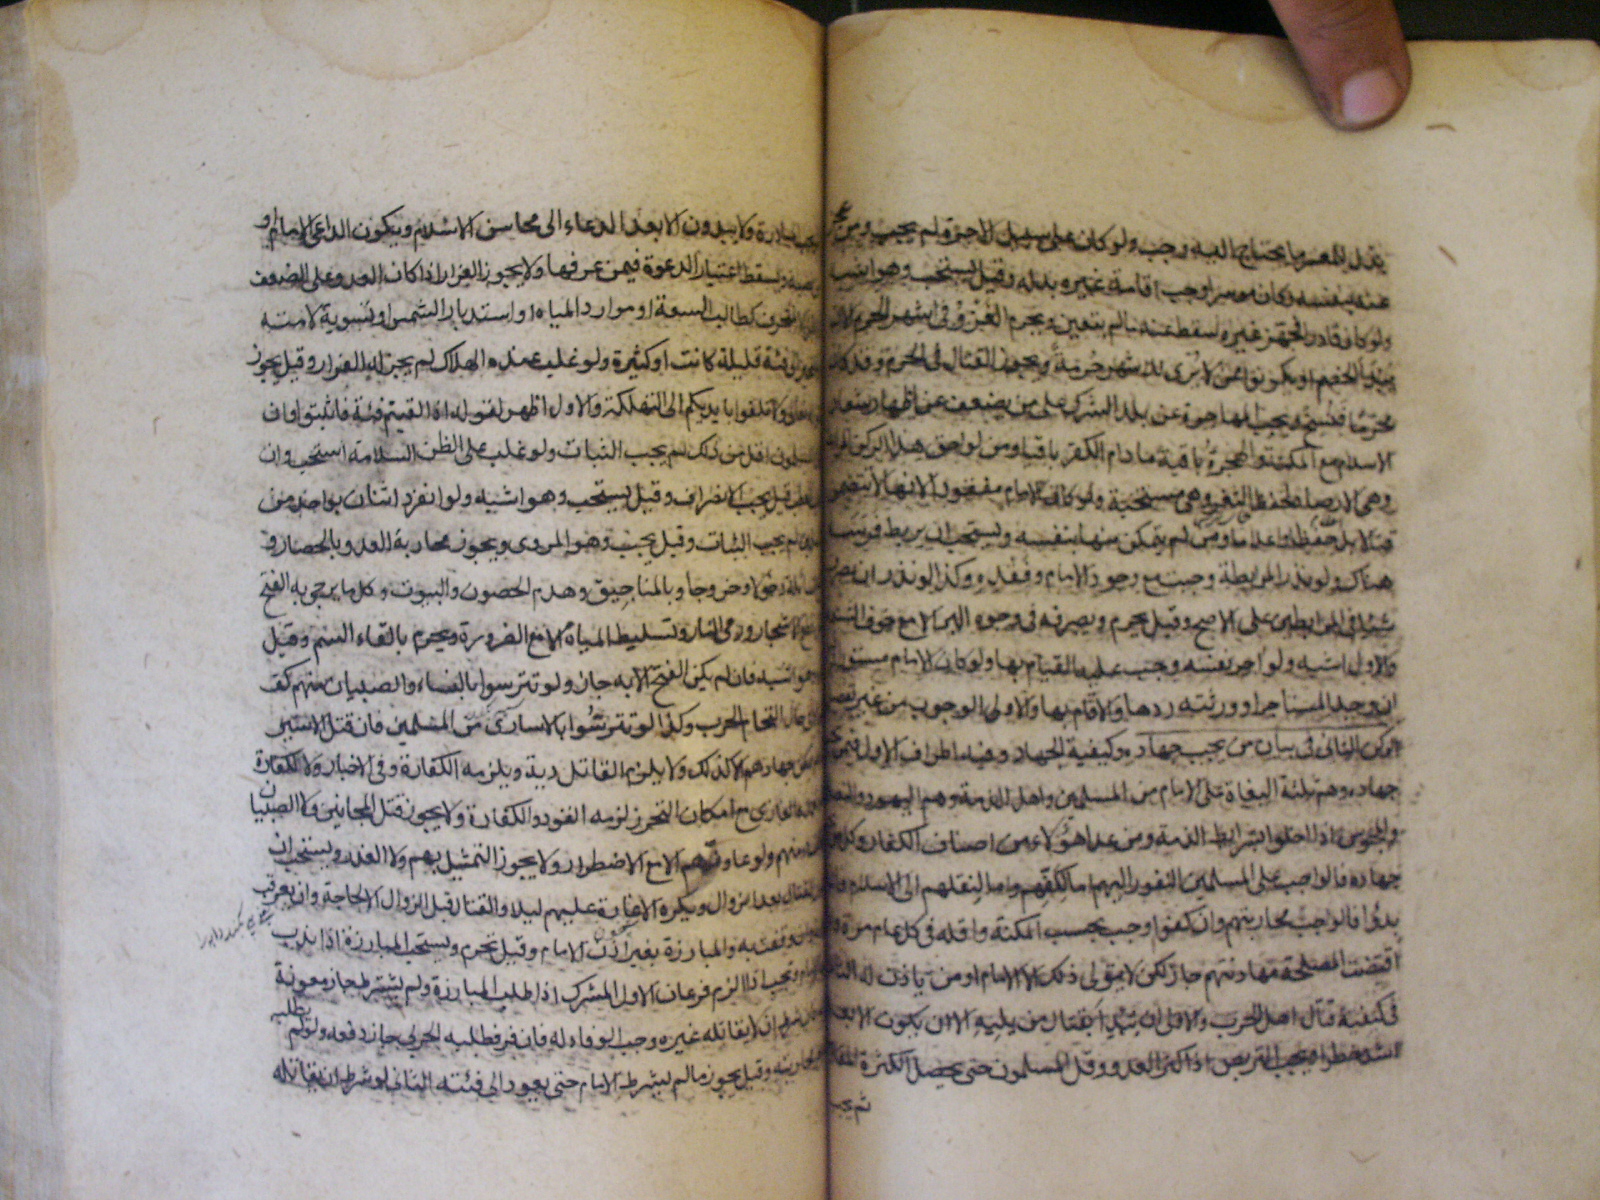 بذل للمعسر ما يحتاج اليه وجب ولو كان على سبيل الاجرة لم يجب ومن عجز
عنه بنفسه وكان موسرا وجب اقامة غيره بدله وقيل يستحب وهو اشبه
ولو كان قادرا فجهز غيره سقط عنه ما لم يتعين ويحرم الغزو في اشهر الحرم الا ان
يبدأ الخصم او يكونوا ممن لا يرى للاشهر حرمة ويجوز القتال في الحرم وقد كان
محرما فنسخ ويجب المهاجرة عن بلد الشرك على من يضعف عن اظهار شعار
الاسلام مع المكنة والهجرة باقية ما دام الكفر باقيا ومن لواحق هذا الركن المرابطة
وهي الارصاد لحفظ الثغر وهي مستحبة ولو كان الامام مفقودا لانها لا تتضمن
قتالا بل حفظا واعلاما ومن لم يتمكن منها بنفسه يستحب ان يربط فرسه
هناك ولو نذر المرابطة وجبت مع وجود الامام وفقده وكذا لو نذر ان يصرف
شيئا في المرابطين على الاصح وقيل يحرم ويصرفه في وجوه البر الا مع خوف الشنعة
والاول اشبه ولو آجر نفسه وجب عليه القيام بها ولو كان الامام مستورا
ان وجد المستاجر او ورثته ردها والا قام بها والاولى الوجوب من غير تفصيل
الركن الثاني في بيان من يجب جهاده وكيفية الجهاد وفيه اطراف الاول فيمن يجب
جهاده وهم ثلثة البغاة على الامام من المسلمين واهل الذمة وهم اليهود والنصارى
والمجوس اذا اخلوا بشرايط الذمة ومن عدا هؤلاء من اصناف الكفار وكل من يجب
جهاده فالواجب على المسلمين النفور اليهم اما لكفهم واما لنقلهم الى الاسلام فان
بدؤا فالواجب محاربتهم وان كفوا وجب بحسب المكنة واقله في كل عام مرة واذا
اقتضت المصلحة مهادنتهم جاز لكن لا يتولى ذلك الا الامام او من ياذن له الثاني
في كيفية قتال اهل الحرب والاولى ان يبدأ بقتال من يليه الا ان يكون الابعد
اشد خطرا ويجب التربص اذا كثر العدو وقل المسلمون حتى يحصل الكثرة للمقاومة
ثم يجب
يجب المبادرة ولا يبدون الا بعد الدعاء الى محاسن الاسلام ويكون الداعي الامام او
من نصبه ويسقط اعتبار الدعوة فيمن عرفها ولا يجوز الفرار اذا كان العدو على الضعف
او اقل الا لتحرف كطالب السعة او موارد المياه او استدبار الشمس او تسوية لامته
او لتحيز الى فئة قليلة كانت او كثيرة ولو غلب عنده الهلاك لم يجز له الفرار وقيل يجوز
لقوله ولا تلقوا بايديكم الى التهلكة والاول اظهر لقوله اذا لقيتم فئة فاثبتوا وان
كان المسلمون اقل من ذلك لم يجب الثبات ولو غلب على الظن السلامة استحب وان
غلب العطب قيل يجب الانصراف وقيل يستحب وهو اشبه ولو انفرد اثنان بواحد من
المسلمين لم يجب الثبات وقيل يجب وهو المروي ويجوز محاربة العدو بالحصار و
منع السابلة دخولا وخروجا وبالمناجيق وهدم الحصون والبيوت وكل ما يرجى به الفتح
ويكره قطع الاشجار ورمي النار وتسليط المياه الا مع الضرورة ويحرم بالقاء السم وقيل
يكره وهو اشبه فان لم يكن الفتح الا به جاز ولو تترسوا بالنساء والصبيان منهم كف
عنهم الا في حال التحام الحرب وكذا لو تترسوا بالاسارى من المسلمين فان قتل الاسير
اذا لم يمكن جهادهم الا كذلك ولا يلزم القاتل دية ويلزمه الكفارة وفي الاخبار ولا الكفارة
ولو تعمده الغازي مع امكان التحرز لزمه القود والكفارة ولا يجوز قتل المجانين ولا الصبيان
ولا النساء منهم ولو عاونهم الا مع الاضطرار ولا يجوز التمثيل بهم ولا الغدر ويستحب ان
يكون القتال بعد الزوال ويكره الاغارة عليهم ليلا والقتال قبل الزوال الا لحاجة وان يعرقب
الدابة وان وقفت به والمبارزة بغير اذن الامام وقيل تحرم ويستحب المبارزة اذا ندب
اليها الامام وتجب اذا الزم فرعان الاول المشرك اذا طلب المبارزة ولم يشترط جاز معونة
قرنه فان شرط ان لا يقاتله غيره وجب الوفاء له فان فر فطلبه الحربي جاز دفعه ولو لم
يطلبه
لم يجز محاربته وقيل يجوز ما لم يشرط الامام حتى يعود الى فئته الثاني لو شرط ان لا يقاتله